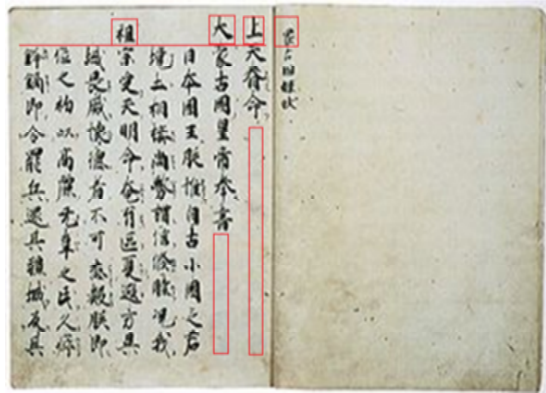 蒙古國牒状
上天眷命
大蒙古國皇帝奉書
日本國王朕惟自古小國之君
境土相接尚務講信修睦況我
祖宗受天明命奄有區夏遐方異
域畏威懷德者不可悉數朕即
位之初以高麗无辜之民久瘁
鋒鏑即令罷兵還其疆域反其